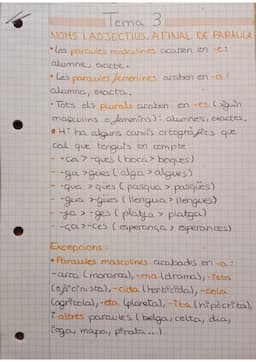 Tema 3
NOMS I ADJECTIUS. A FINAL DE PARAULA
• Les paraules masculines acaben en -e:
alumne, exacte.
• Les paraules femenines acaben en -a:
alumna, exacta.
• Tots els plurals acaben en -es (siguin
masculins o femenins): alumnes, exactes.
• Hi ha alguns canvis ortogràfics que
cal que tenguis en compte:
- -ca > -ques (boca > boques)
- -ga > gues (alga > algues)
- -qua > qües (pasqua > pasqües)
- -gua > -gües (llengua > llengües)
- -ja > -ges (platja > platges)
- -ça > -ces (esperança > esperances)
Excepcions:
• Paraules masculines acabades en -a:
-arca (monarca), -ma (drama), -ista
(oficinista), -cida (herbicida), -cola
(agrícola), -eta (planeta), -ita (hipòcrita),
i altres paraules (belga, celta, dia,
ioga, mapa, pirata...).